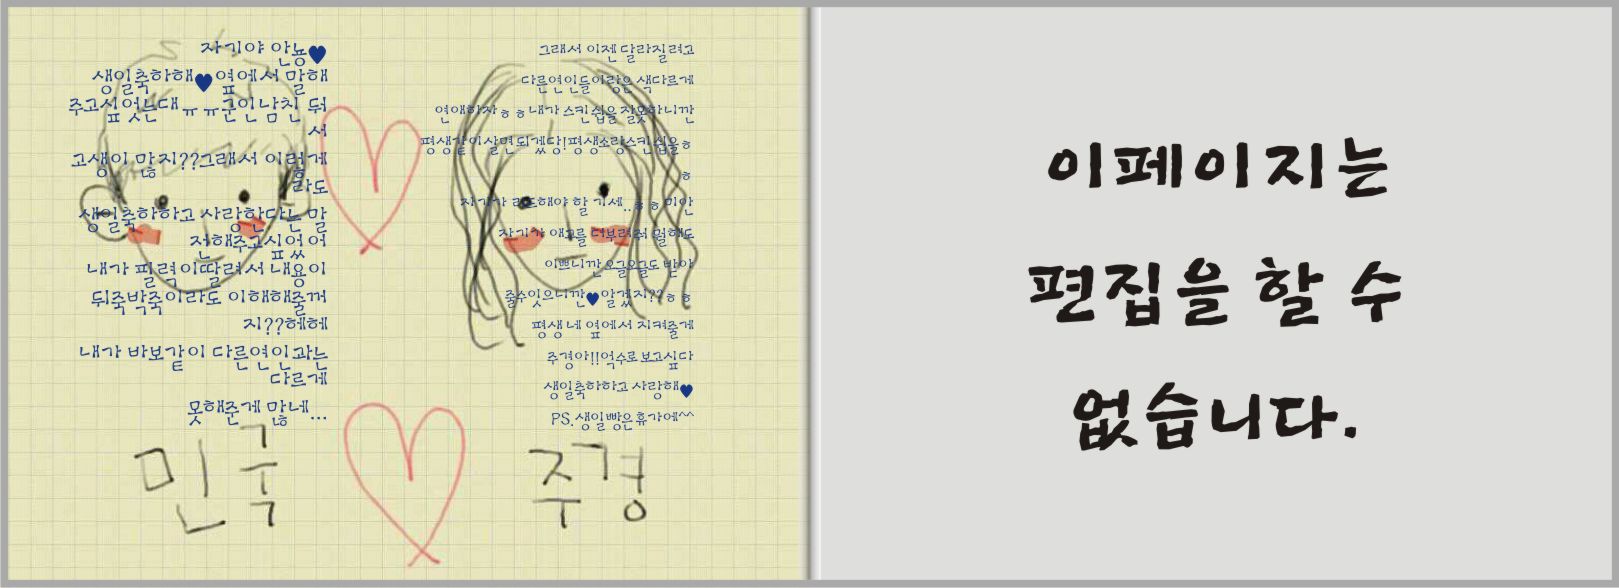 자기야 안뇽♥
생일축하해♥옆에서 말해
주고싶엇는대ㅠㅠ군인남친 둬
서
고생이 많지??그래서 이렇게
라도
생일축하하고 사랑한다는 말
전해주고싶었어
내가 필력이딸려서 내용이
뒤죽박죽이라도 이해해줄꺼
지??헤헤
내가 바보같이 다른연인과는
다르게
못해준게 많네...
민국
그래서 이젠 달라질려고
다른연인들이랑은 색다르게
연애하자ㅎㅎ내가 스킨쉽을 잘못하니깐
평생같이살면되겠당!평생소랑스킨쉽을ㅎ
ㅎ
자기가 리드해야 할 기세..ㅎㅎ미안
자기가 애교를 더부려줘 멀해도
이쁘니깐오글오글도 받아
줄수잇으니깐♥알겠지??ㅎㅎ
평생 네 옆에서 지켜줄게
주경아!!억수로 보고싶다
생일축하하고 사랑해♥
PS.생일빵은휴가에^^
주경
이페이지는
편집을 할 수
없습니다.